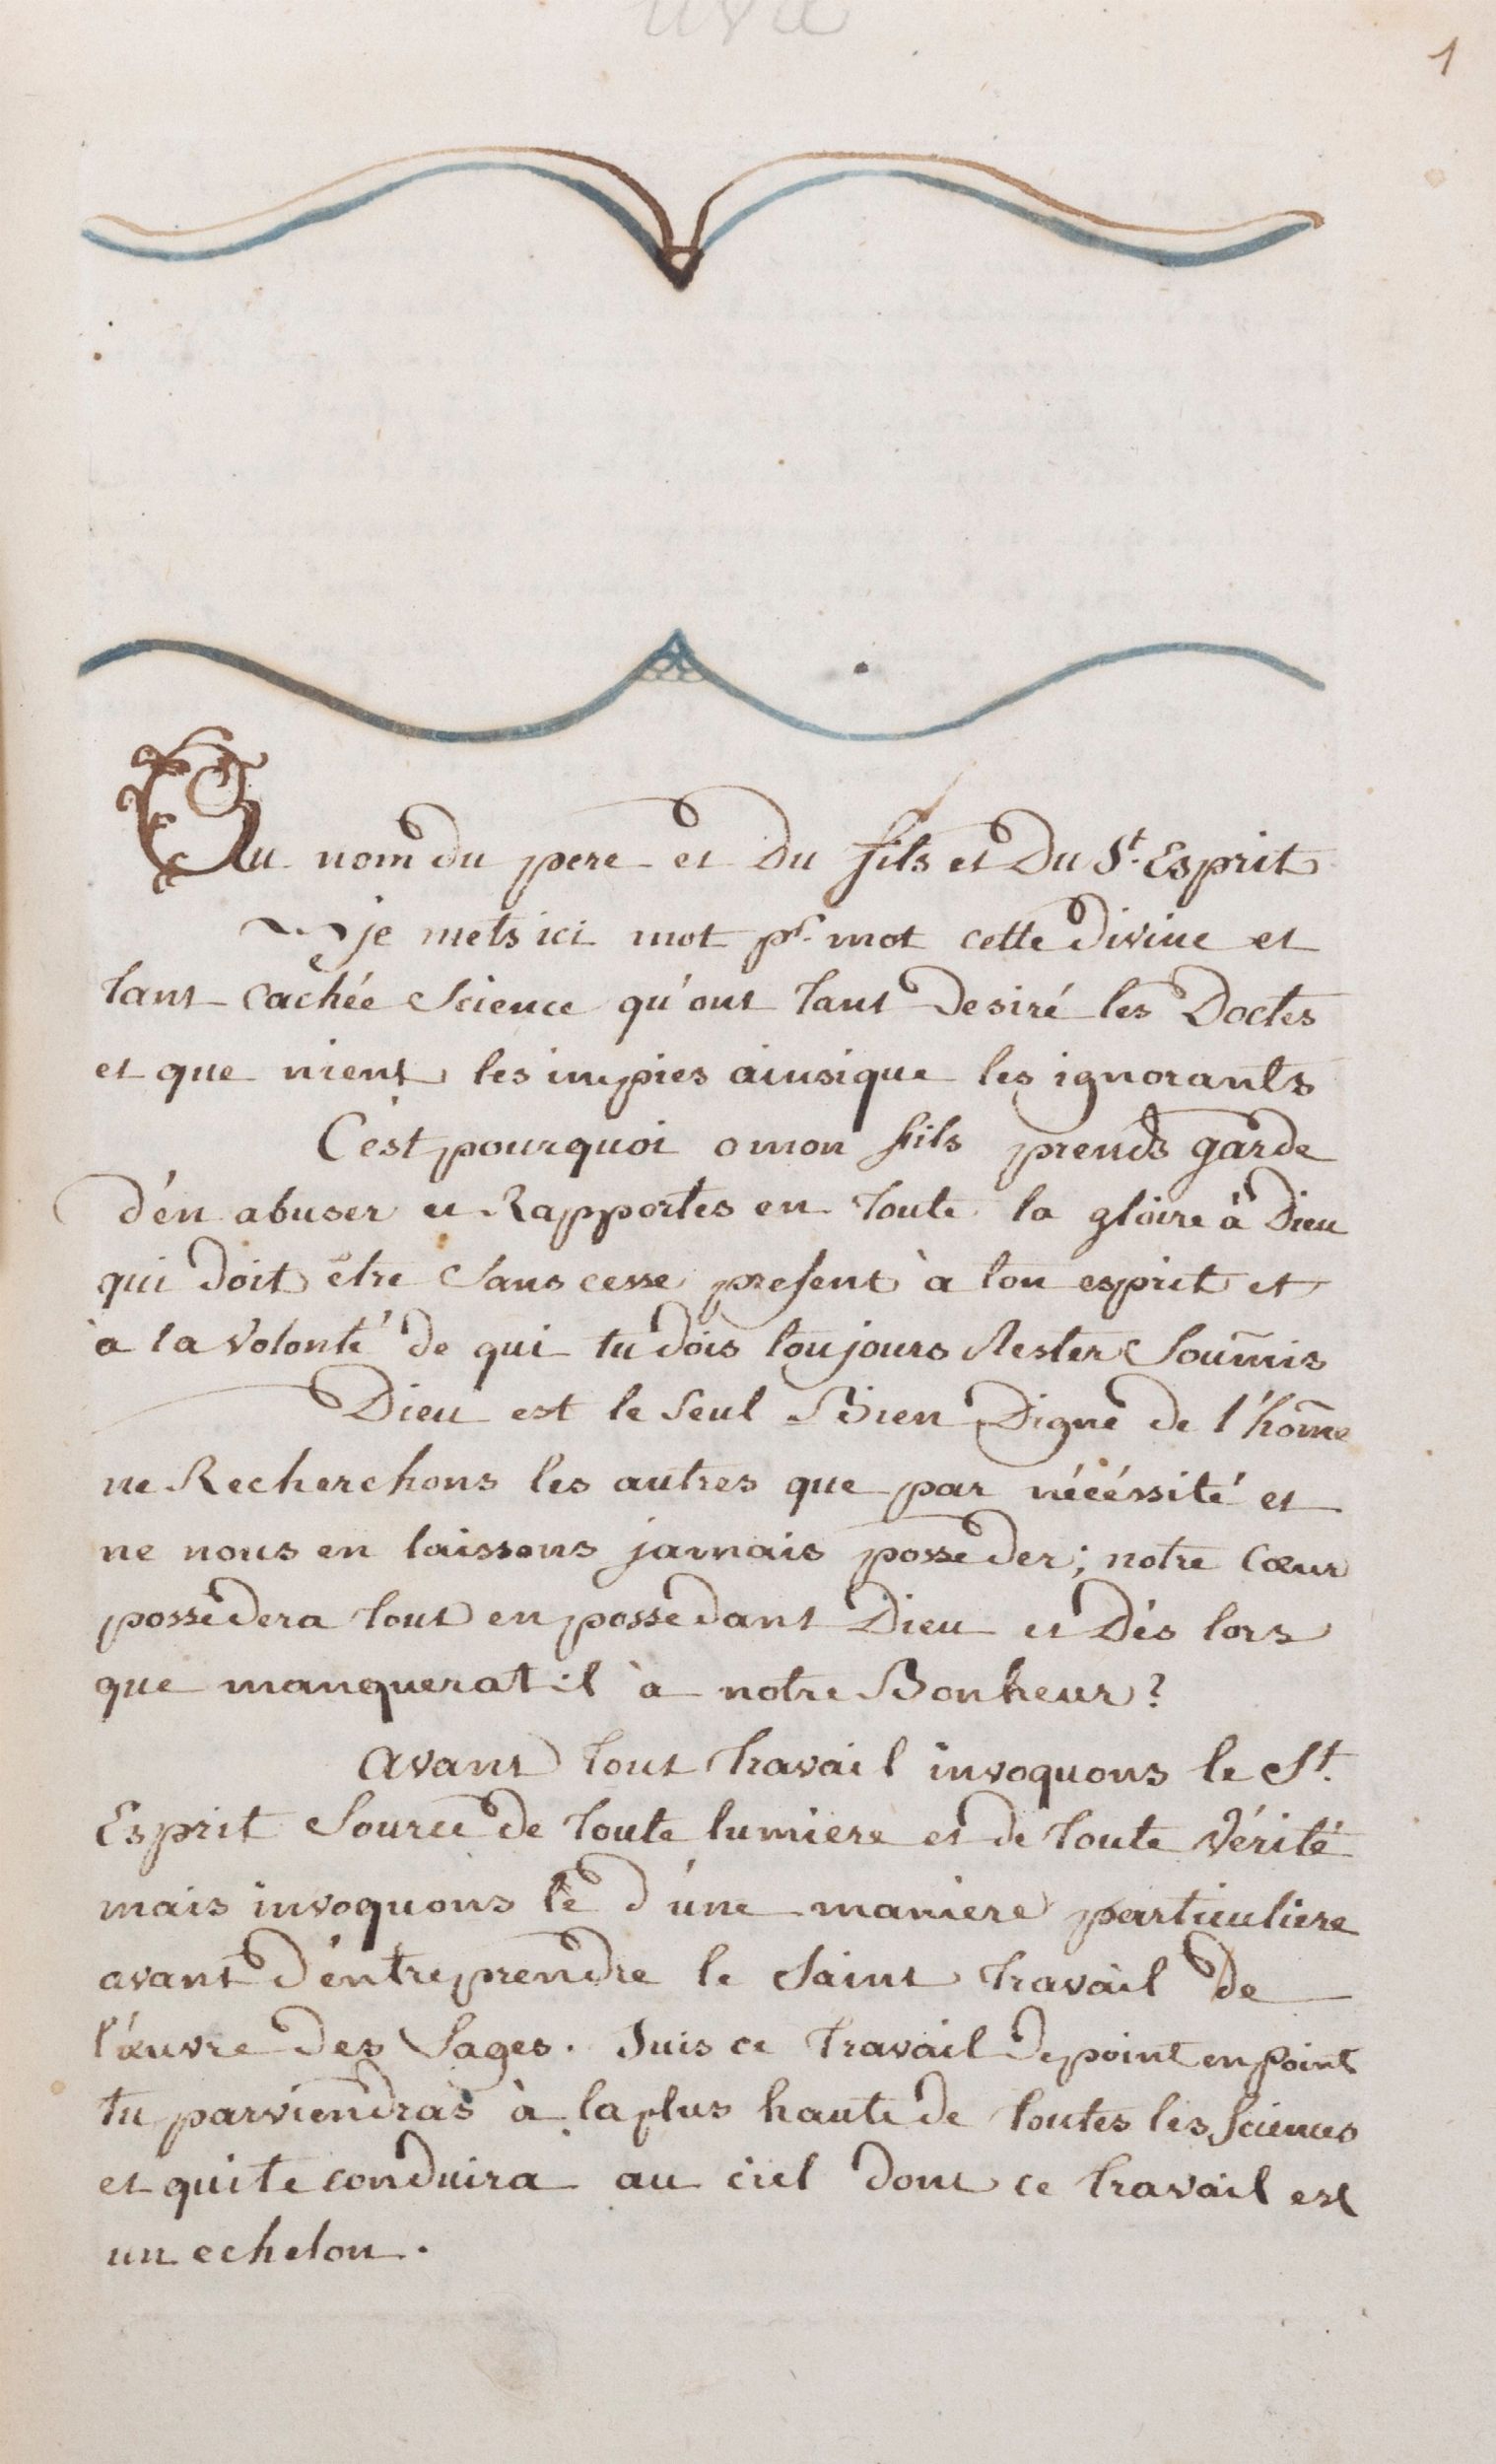 1
Au nom du pere et Du fils et Du St. Esprit
je mets ici mot pr. mot cette Divine et
tant cachée Science qu'ont tant Desiré les Doctes
et que nient les impies ainsique les ignorants
C'est pourquoi o mon fils prends garde
d'en abuser et Rapportes en toute la gloire à Dieu
qui doit être sans cesse present à ton esprit et
à la Volonté de qui tu dois toujours Rester Soum̄is
Dieu est le Seul Bien Digne de l'hom̄e
ne Recherchons les autres que par nécéssité et
ne nous en laissons jamais posseder; notre Cœur
possedera tout en possedant Dieu et Dès lors
que manquerat il à notre Bonheur?
avant tout travail invoquons le St.
Esprit Source de toute lumiere et de toute Vérité
mais invoquons le d'une maniere particuliere
avant d'entreprendre le Saint travail de
l'œuvre des Sages. Suis ce travail de point en point
tu parviendras à la plus haute de toutes les Sciences
et qui te conduira au ciel dont ce travail est
un echelon.